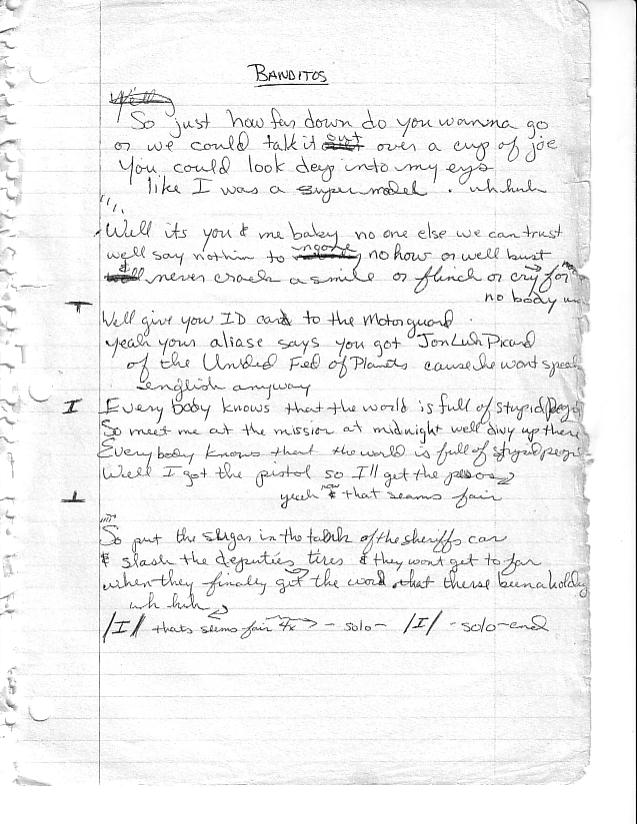 BANDITOS
So just how far down do you wanna go
or we could talk it out over a cup of joe
You could look deep into my eyes
like I was a supermodel . uh huh
Well its you & me baby no one else we can trust
well say nothin to no how or well bust
& never crack a smile or flinch or cry for
no body
Well give your ID card to the Motorguard
yeah your aliase says you got JonLuhPicard
of the United Fed of Planets cause he wont speak
english anyway
I Everybody knows that the world is full of stupid people
So meet me at the mission at midnight well divy up there
Everybody knows that the world is full of stupid people
Well I got the pistol so I'll get the pesos
yeah & that seams fair
So put the sugar in the tank of the sheriffs car
& slash the deputies tires & they wont get to far
when they finaley get the word that therse been a holdup
uh huh
/I/ thats seems fair 4x - solo - /I/ - solo - end